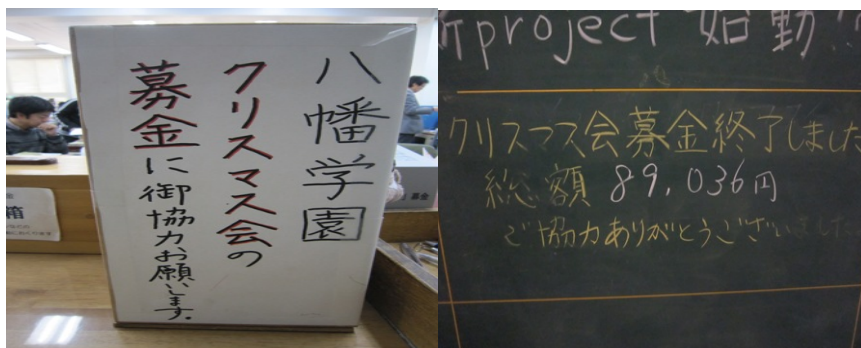 八幡学園
クリスマス会の
募金に御協力お願いします。
募金
箱
project 始動!!
クリスマス会募金終了しました
総額 89,036円
ご協力ありがとうございました